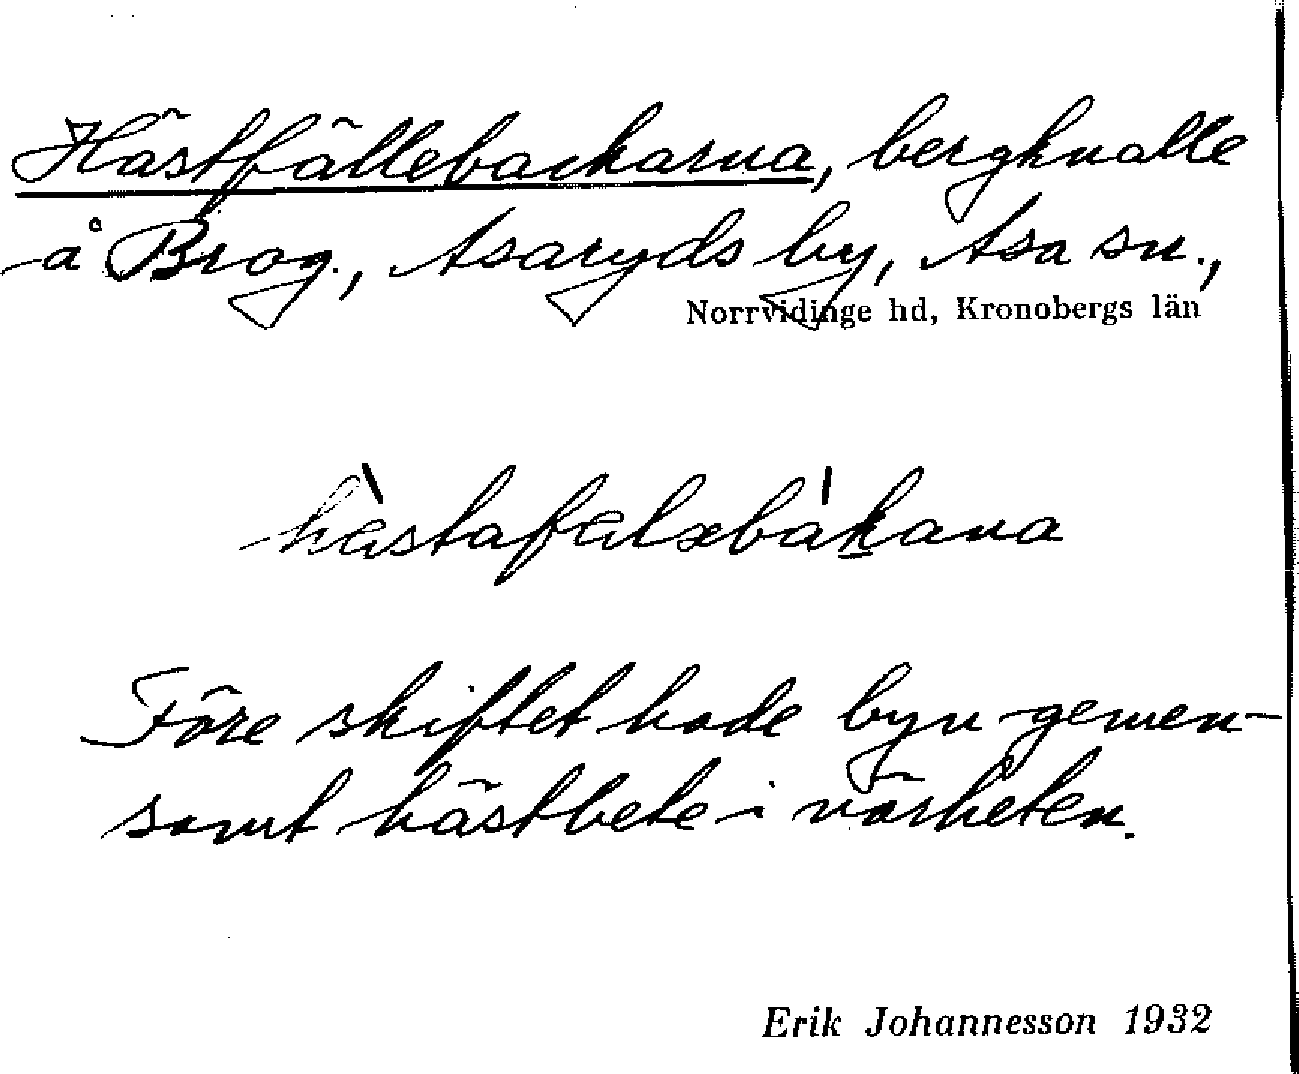 Hästfällebackarna, bergknalle
å Brog., Asaryds by, Asa sn.,
Norrvidinge hd, Kronobergs län
hàstafalæbàkana
Före skiftet hade byn gemen-
samt hästbete i närheten.
Erik Johannesson 1932